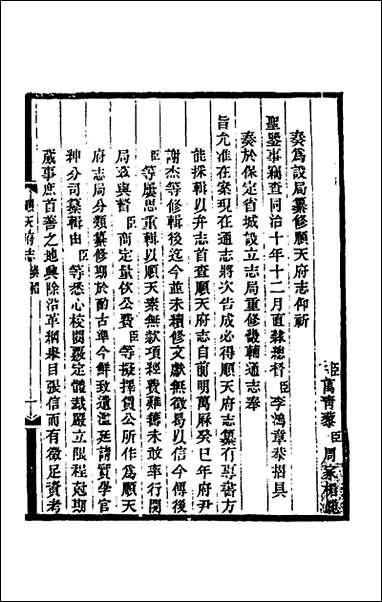 臣萬青藜臣周家楣跪
奏爲設局纂修順天府志仰祈
聖鑒事竊查同治十年十二月直隸總督臣李鴻章恭摺具
奏於保定省城設立志局重修畿輔通志奉
旨允准在案現在通志將次告成必得順天府志纂有專書方
能採輯以弁志首查順天府志自前明萬厤癸巳年府尹
謝杰等修輯後迄今並未續修文獻無徵曷以信今傳後
臣等屢思重輯以順天素無款項經費難籌未敢率行開
局茲與督臣商定量攸公費臣等擬擇賃公所作爲順天
府志局分類纂修期於酌古準今鮮致遺濫延請實學官
紳分司纂輯由臣等悉心校閱釐定體裁嚴立限程剋期
蕆事庶首善之地興除沿革綱舉目張信而有徵足資考
順天府志
一